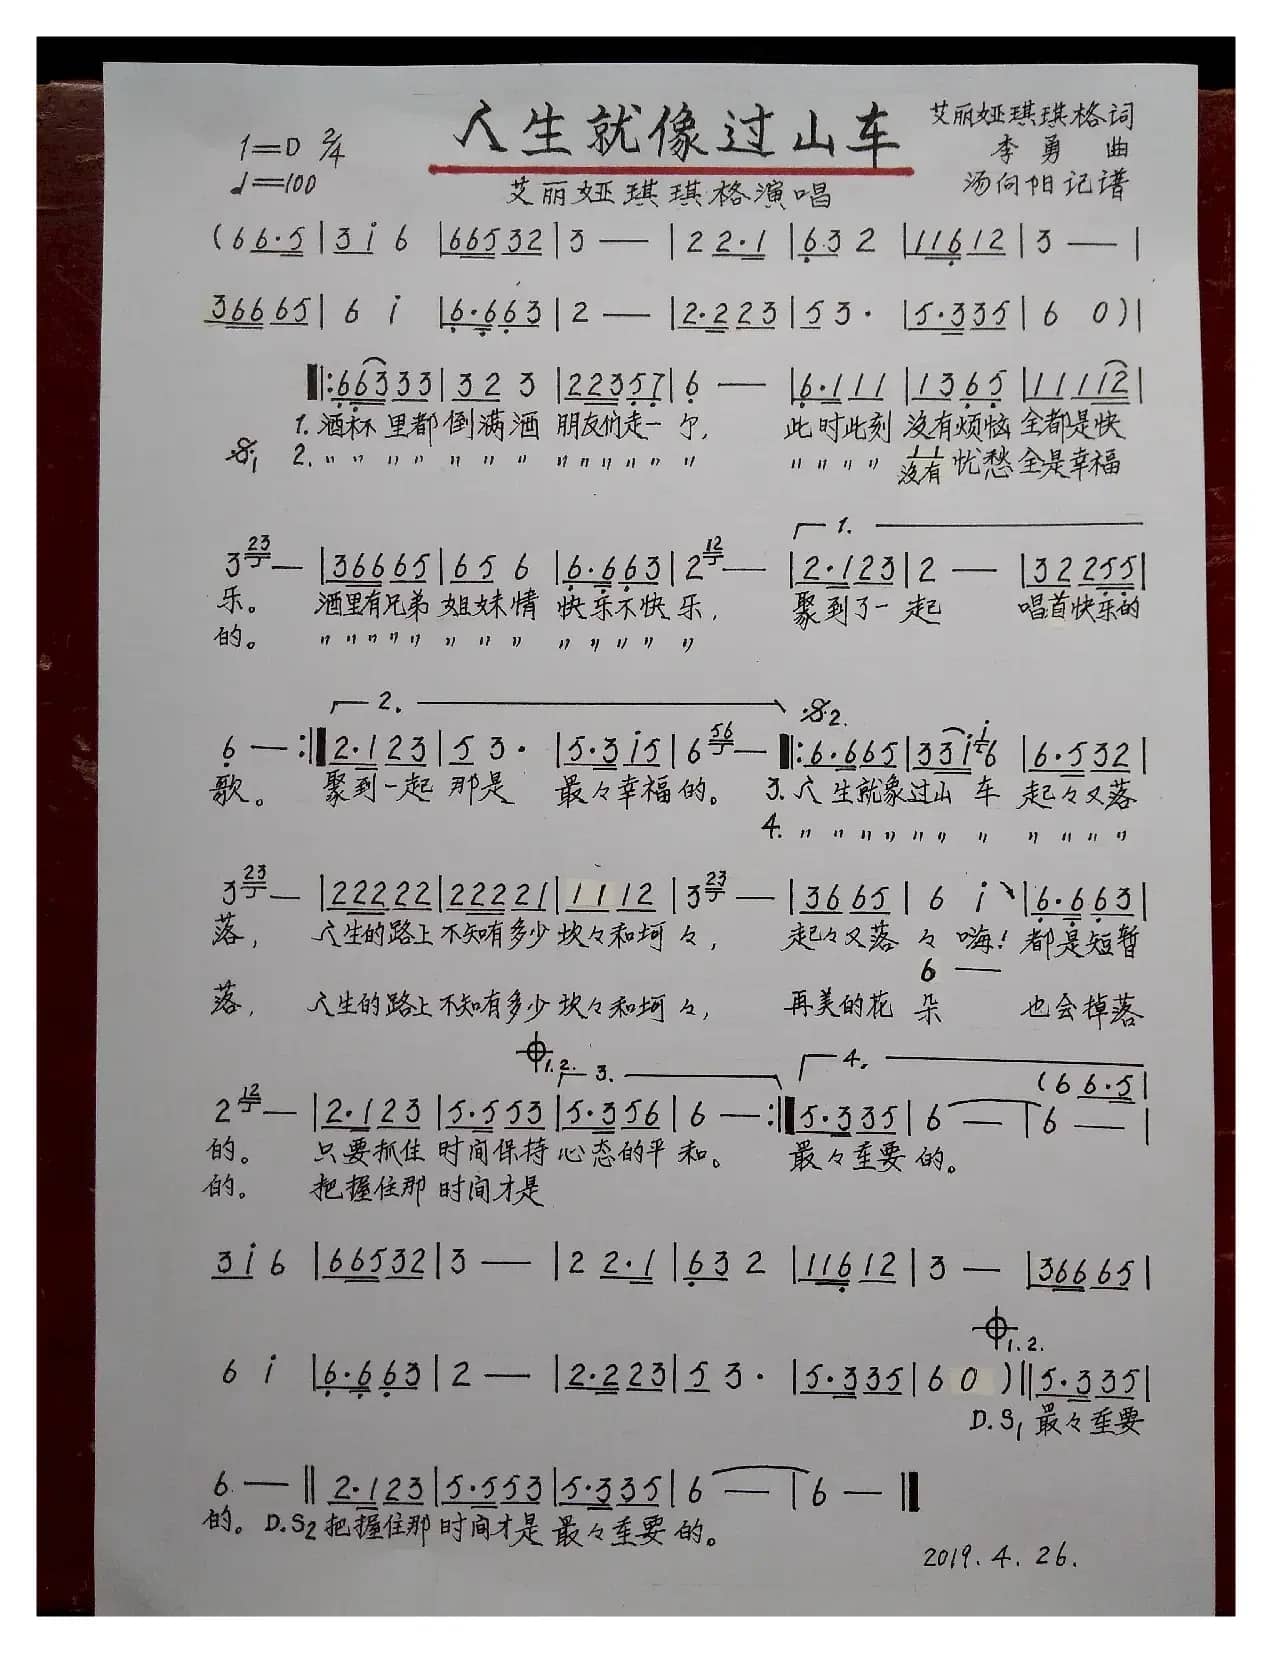 人生就像过山车
1=D 2/4
♩=100
艾丽娅琪琪格词
李勇 曲
汤向阳记谱
艾丽娅琪琪格演唱
(6 6·5 | 3 i 6 | 66532 | 3 — | 2 2·1 | 63 2 | 11612 | 3 — |
36665 | 6 i | 6·663 | 2 — | 2·223 | 5 3· | 5·335 | 6 0 ) |
‖: 66333 | 3 2 3 | 22357 | 6 — | 6·111 | 1365 | 11112 |
1. 酒杯 里都 倒满酒 朋友们走一个, 此时此刻 没有烦恼 全都是快
𝄋1 2. 〃 〃 〃 〃 〃 〃 〃 〃 〃 〃 〃 〃 〃 〃 〃 〃 〃 1 1 没有 忧愁 全是幸福
1.
3 23 — | 36665 | 65 6 | 6·663 | 2 12 — | 2·123 | 2 — | 32255 |
乐。 酒里有兄弟 姐妹情 快乐不快乐, 聚到了一起 唱首快乐的
的。 〃 〃 〃 〃 〃 〃 〃 〃 〃 〃 〃 〃 〃
2. 𝄋2.
6 — :‖ 2·123 | 5 3· | 5·3i5 | 6 56 — ‖: 6·665 | 33i i6 | 6·532 |
歌。 聚到一起 那是 最々幸福的。 3. 人生就象过山 车 起々又落
4. 〃 〃 〃 〃 〃 〃 〃 〃 〃 〃 〃
3 23 — | 22222 | 22221 | 1112 | 3 23 — | 3665 | 6 i | 6·663 |
落, 人生的路上 不知有多少 坎々和坷々, 起々又落々 嗨! 都是短暂
6 —
落, 人生的路上 不知有多少 坎々和坷々, 再美的花 朵 也会掉落
𝄌1.2. 3. 4. (6 6·5 |
2 12 — | 2·123 | 5·553 | 5·356 | 6 — :‖ 5·335 | 6 — | 6 — |
的。 只要抓住 时间保持 心态的平和。 最々重要的。
的。 把握住那 时间才是
3 i 6 | 66532 | 3 — | 2 2·1 | 63 2 | 11612 | 3 — | 36665 |
𝄌1.2.
6 i | 6·663 | 2 — | 2·223 | 5 3· | 5·335 | 6 0 ) ‖ 5·335 |
D.S1 最々重要
6 — ‖ 2·123 | 5·553 | 5·335 | 6 — | 6 — ‖
的。 D.S2 把握住那 时间才是 最々重要的。
2019.4.26.